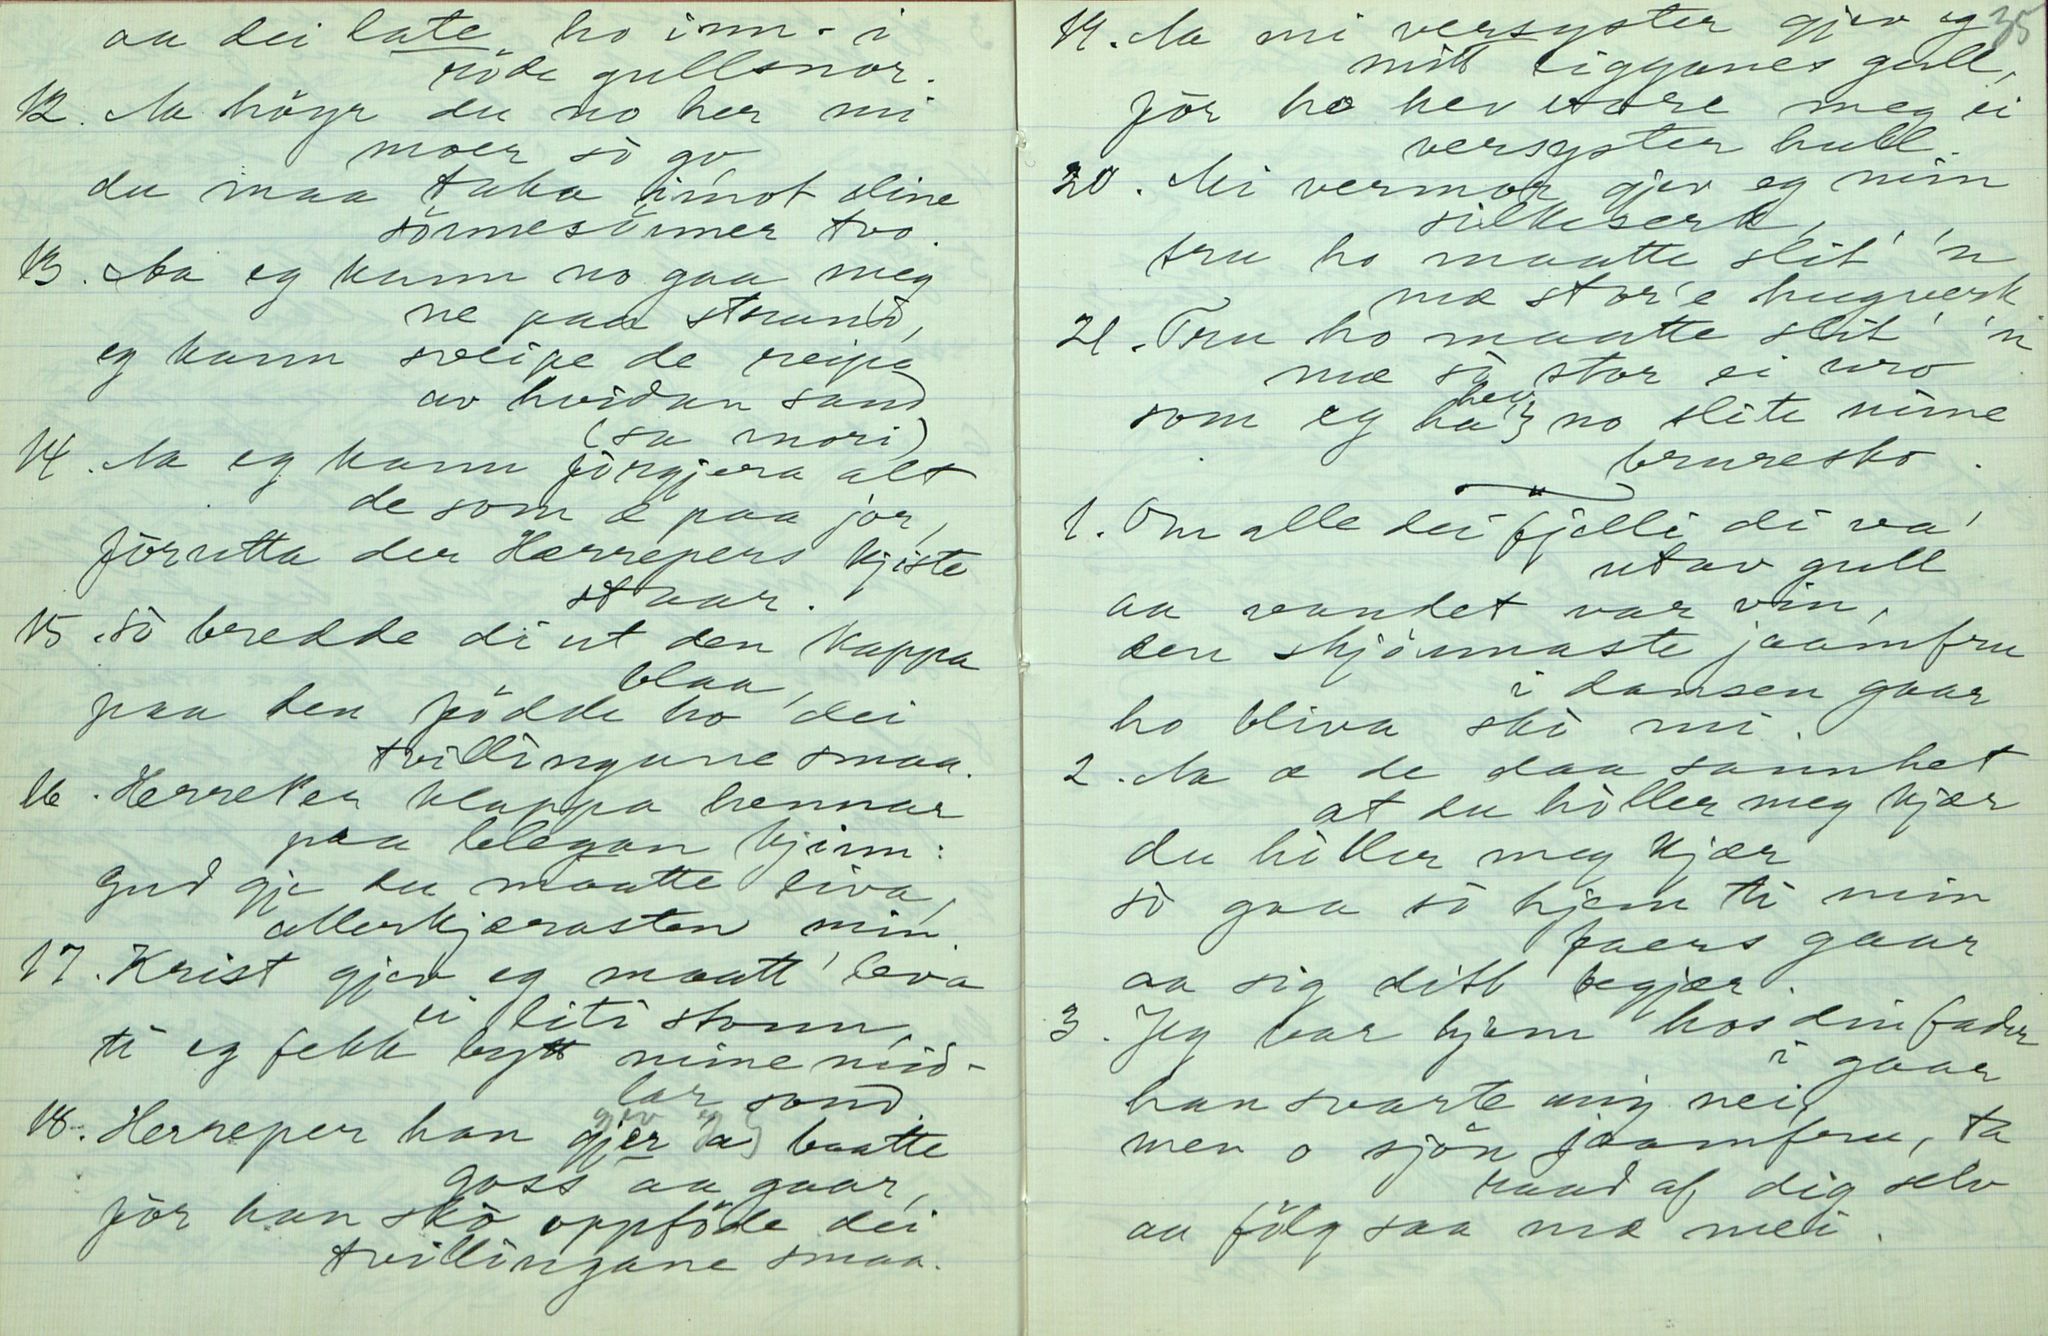 aa dei late ho inn i
röde gullsnor.
12. Aa höyr du no her mi
moer sò go,
du maa taka imot dine
sònnesònner tvo.
13. Aa eg kann no gaa meg
ne paa strand,
eg kann sveipe de reipa
av hvidan sand
(sa mori)
14. Aa eg kann fòrgjera alt
de som æ paa jor,
fòrutta der Herrepers kjiste
staar.
15. Sò bredde di ut den kappa
blaa,
paa den födde ho dei
tvillingane smaa.
16. Herreper klappa hennar
paa blegan kjinn:
Gud gje du maatte liva,
allerkjærasten min.
17. Krist gjev eg maatt' leva
ei liti stonn,
ti eg fekk bytt mine mid-
lar sond.
gjev eg
18. Herreper han gjer a} baatte
goss aa gaar,
fòr han skò oppföde dei
tvillingane smaa.
35
19. Aa mi versyster gjev eg
mitt ligganes gull,
fòr ho hev vore meg ei
versyster hull.
20. Mi vermor gjev eg min
silkeserk,
tru ho maatte slit' 'n
mæ stor'e hugverk
21. Tru ho maatte slit' 'n
mæ sò stor ei uro
hev
som eg ha} no slite mine
bruresko.
1. Om alle dei fjelli di va'
utav gull
aa vandet var vin,
den skjònnaste jaamfru
i dansen gaar
ho bliva skò mi.
2. Aa æ de daa sannhet
at du hòller meg kjær
du hòller meg kjær
sò gaa sò hjem ti min
faers gaar
aa sig ditt begjær.
3. Jeg var hjem hos din fader
i gaar
han svarte mig nei,
men o sjön jaamfru, ta
raad af dig selv
aa fölg saa mæ mei.